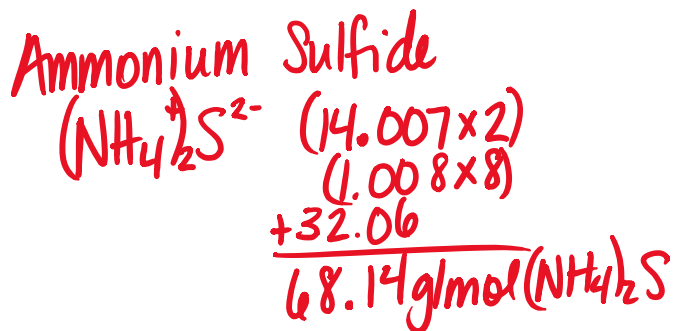 Ammonium Sulfide
(NH₄⁺)₂S²⁻ (14.007×2)
(1.008×8)
+32.06
68.14g/mol(NH₄)₂S